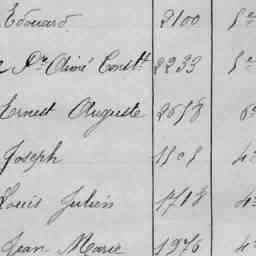 Edouard 2100 5e
Aimé Constt 2233 5e
Ernest Auguste 2658 6e
Joseph 1505 4e
Louis Julien 1718 4e
Jean Marie 1976 4e